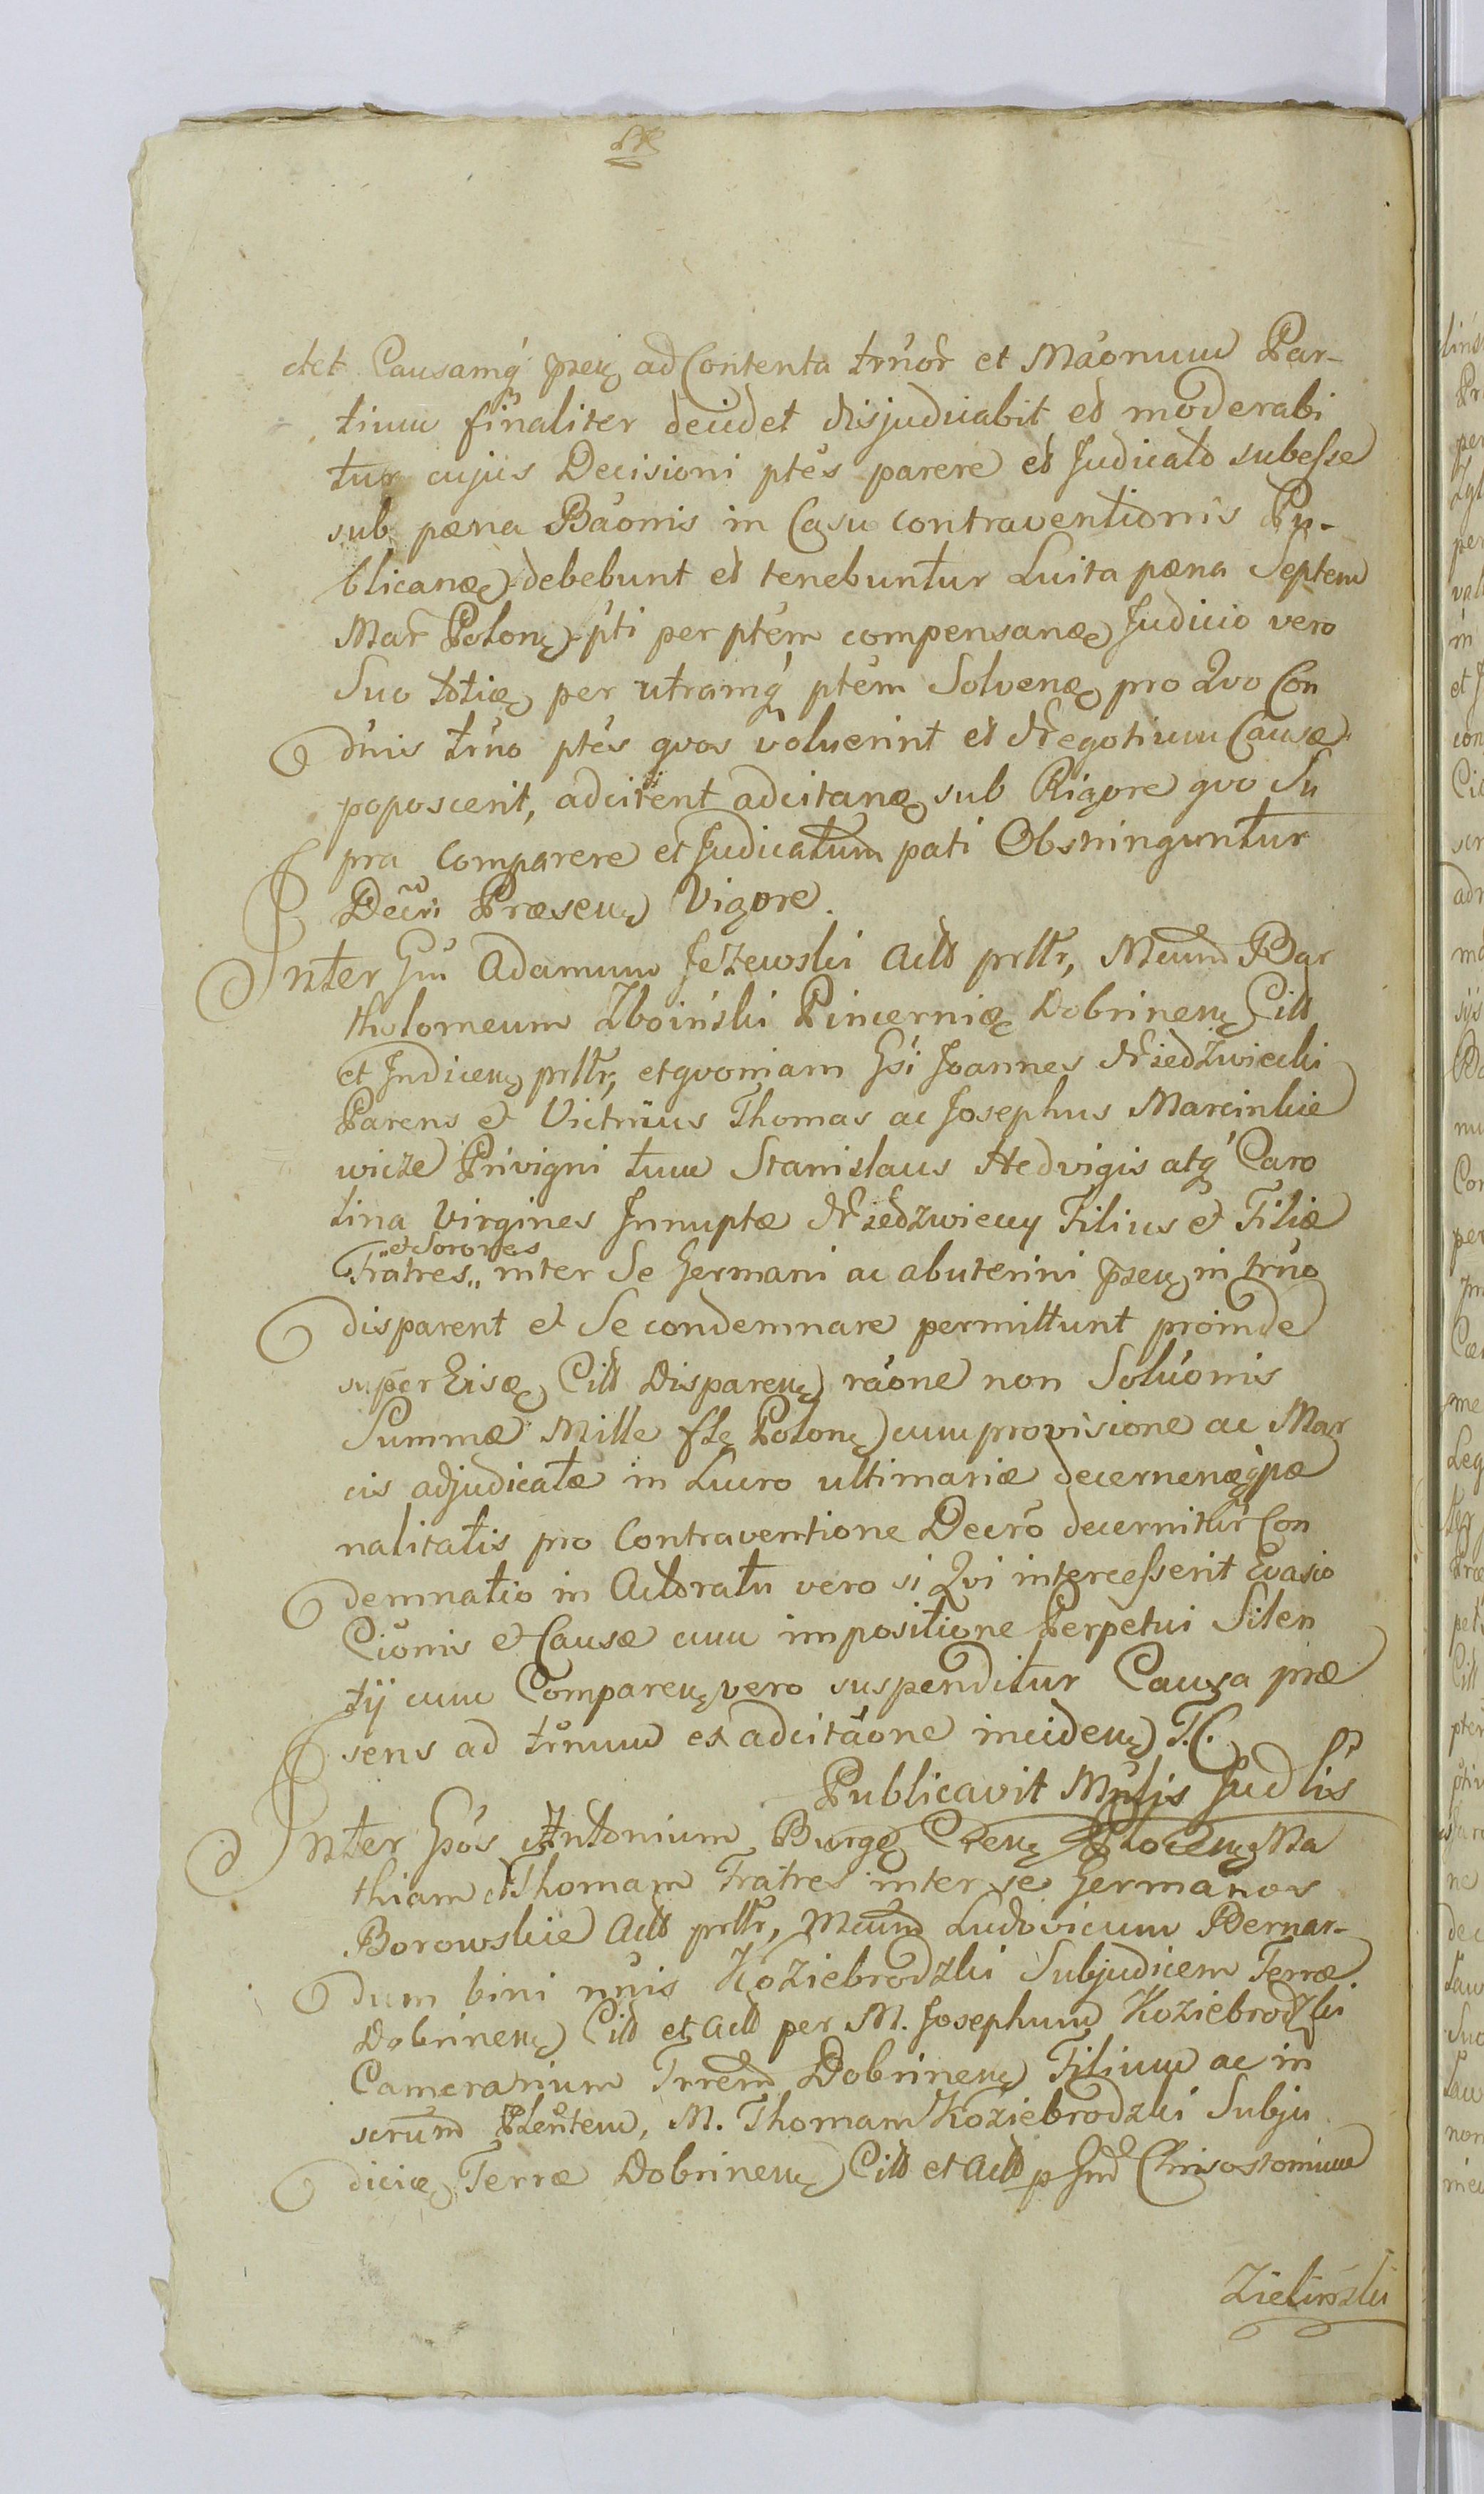 ctet Causamq́ pzeuę ad Contenta trńor̃ et Mãonum Par-
tium finaliter decidet disjudicabit et moderabi
tur cujus Decisioni ptés parere et Judicato subesse
sub pæna Bãonis in Casu contraventionis Pu-
blicanæ debebunt et tenebuntur Luita pæna Septem
Mar̃ Polonę pti per ptém compensanæ Judicio vero
Suo totiæ per utramq́ ptém Solvenæ pro Quo Con
dńis trńo ptés quos voluerint et Negotium Causæ
poposcerit, adcitent adcitanæ sub Rigore quo Su
pra Comparere et Judicatum pati Obstringuntur
Decri Præseuę Vigore.
Inter Gm̃ Adamum Jeżewski Actt prllr, Mcum Bar
tholomeum Zboiński Pincerniæ Dobrineuę Citt
et Judiceuę prllr, etquoniam Gsi Joannes Niedzwiecki
Parens et Victricus Thomas ac Josephus Marcinkie
wicze Privigni tum Stanislaus Hedvigis atq́ Caro
lina Virgines Innuptæ Niedzwieccy Filius et Filiæ
et Sorores
Fratres „ inter Se Germani ac abuterini pzeuę in trńo
disparent et Se condemnare permittunt proinde
super Eisæ Citt Dispareuę rãone non Solũonis
Summæ Mille flę Polonę cum provisione ac Mar
cis adjudicatæ in Lucro ultimariæ decernenæq́ pæ
nalitatis pro Contraventione Decro decernitur Con
demnatio in Actoratu vero si Qvi intercesserit Evasio
Cionis et Causæ cum impositione Perpetui Silen
tij cum Compareuę vero suspenditur Causa præ
sens ad trńum ex adcitãone incideuę T.C.
Publicavit Mńlis Judlis
Inter Gsós Antonium Burgę Creuę Ploceuę Ma
thiam Thomam Fratres inter se Germanos
Borowskie Actt prllr, Mcum Ludovicum Bernar-
dum bini nńis Koziebrodzki Subjudicem Terræ
Dobrineuę Citt et Actt per M. Josephum Koziebrodzki
Camerarium Trrem Dobrineuę Filium ac in
scrum Plentem, M. Thomam Koziebrodzki Subju
diciæ Terræ Dobrineuę Citt et Actt p Gm̃ Chrisostomum
Zielinski